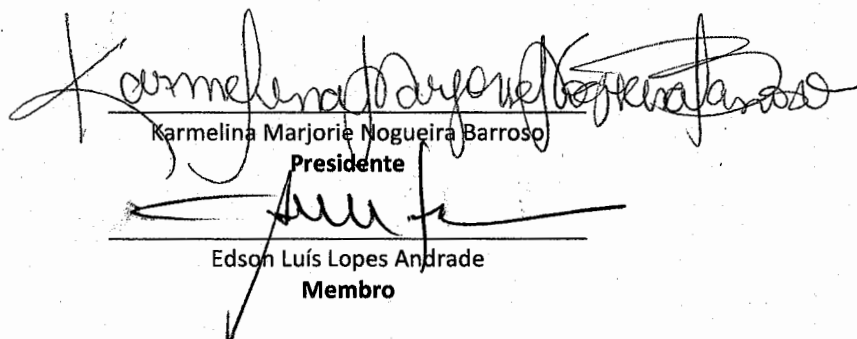 Karmelina Marjorie Nogueira Barroso
Karmelina Marjorie Nogueira Barroso
Presidente
Edson Luís Lopes Andrade
Membro